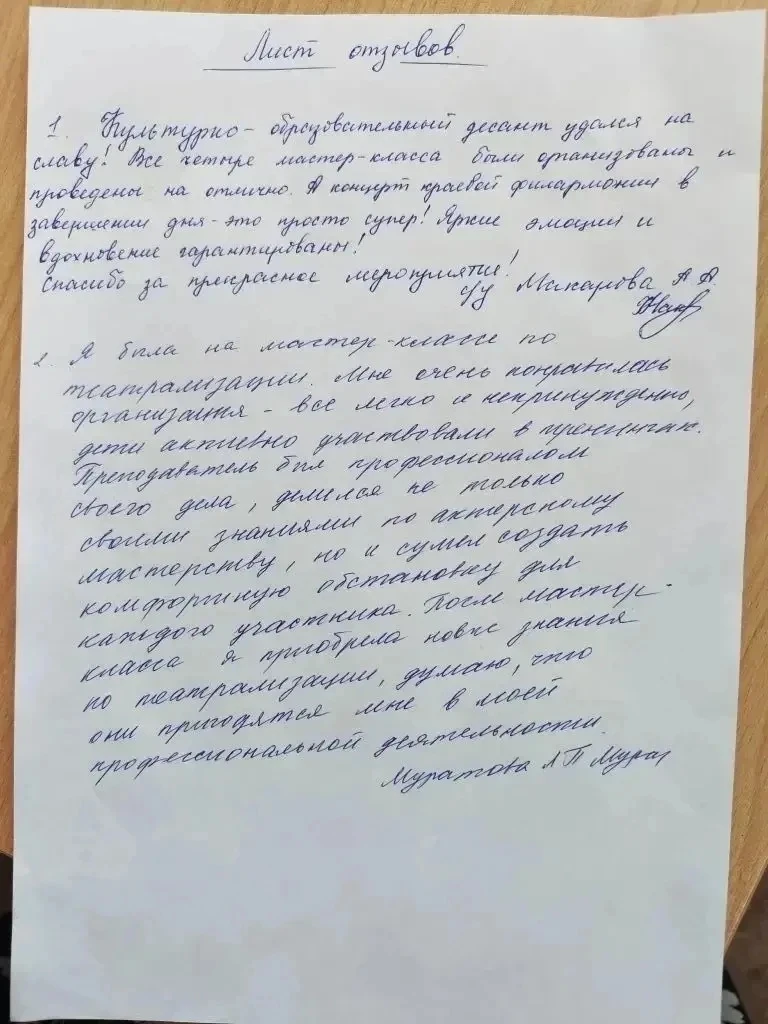 Лист отзывов.
1. Культурно-образовательный десант удался на
славу! Все четыре мастер-класса были организованы и
проведены на отлично. А концерт краевой филармонии в
завершении дня - это просто супер! Яркие эмоции и
вдохновение гарантированы!
Спасибо за прекрасное мероприятие!
Макарова А А.
2. Я была на мастер-классе по
театрализации. Мне очень понравилась
организация - все легко и непринужденно,
дети активно участвовали в тренингах.
Преподаватель был профессионалом
своего дела, делился не только
своими знаниями по актерскому
мастерству, но и сумел создать
комфортную обстановку для
каждого участника. После мастер-
класса я приобрела новые знания
по театрализации, думаю, что
они пригодятся мне в моей
профессиональной деятельности.
Муратова Л П Мура